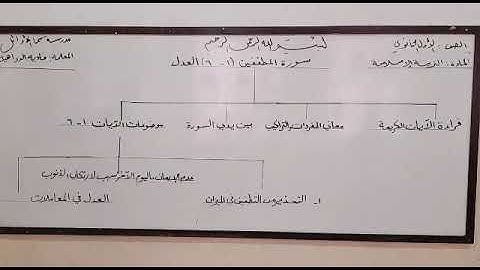 الصف: الأول الثانوي
بسم الله الرحمن الرحيم
مدرسة
المادة: التربية الإسلامية
سورة المطففين (١-٦) العدل
المعلمة:
قراءة الآيات الكريمة
معاني المفردات والتراكيب
بين يدي السورة
موضوعات الآيات ١-٦
عدم الإيمان باليوم الآخر سبب لارتكاب الذنوب
١- التحذير من التطفيف في الميزان
العدل في المعاملات